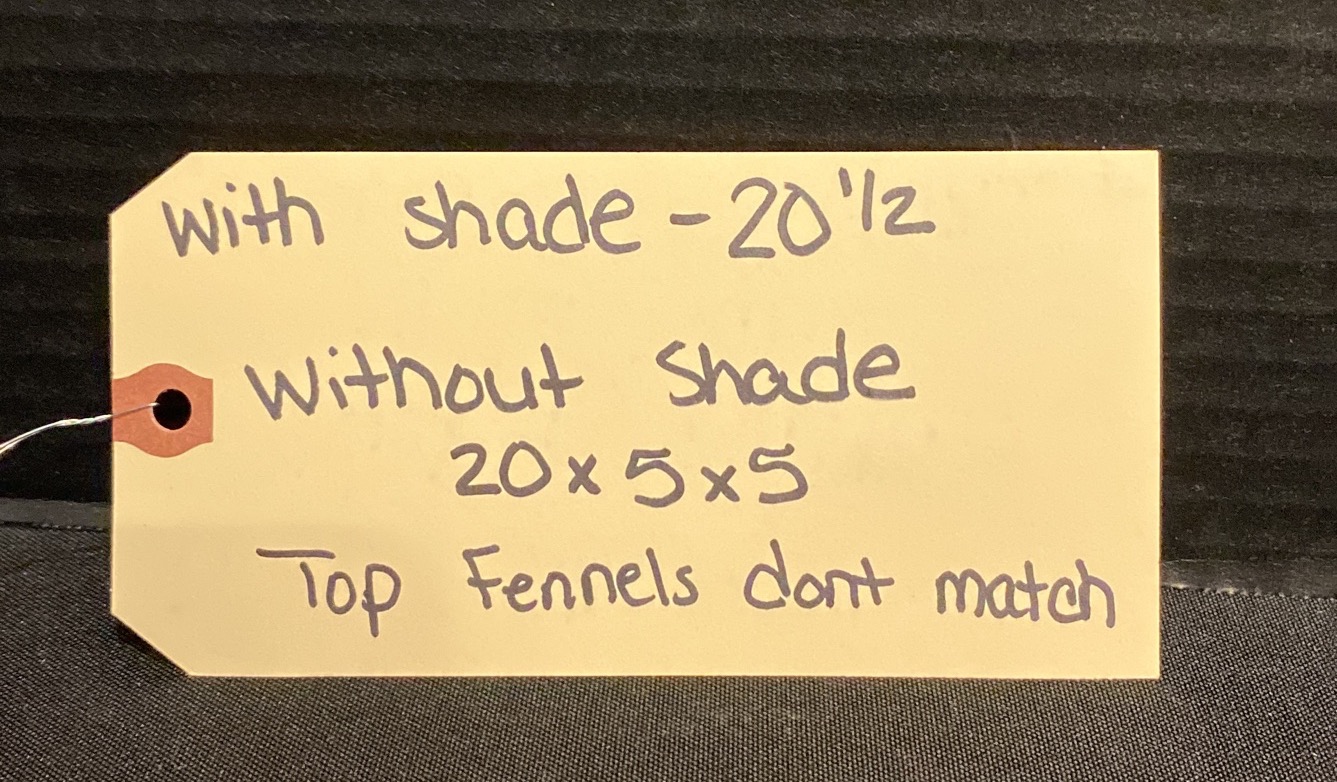 With shade - 20 1/2
Without Shade
20 x 5 x 5
Top Fennels dont match